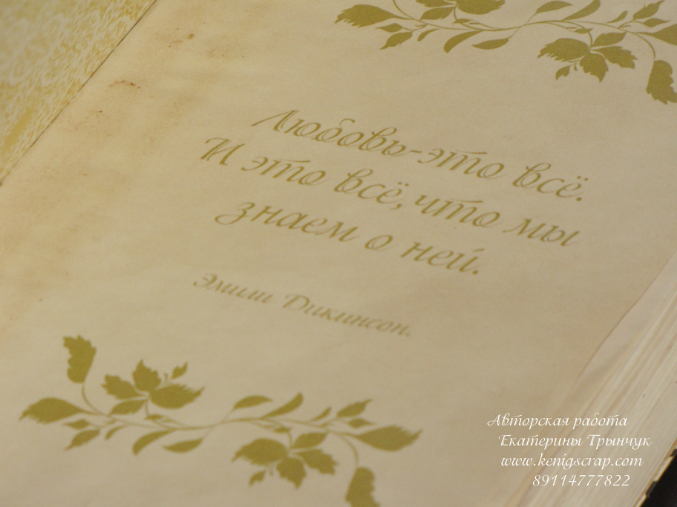 Любовь-это всё.
И это всё, что мы
знаем о ней.
Эмили Дикинсон.
Авторская работа
Екатерины Трынчук
www.kenigscrap.com
89114777822